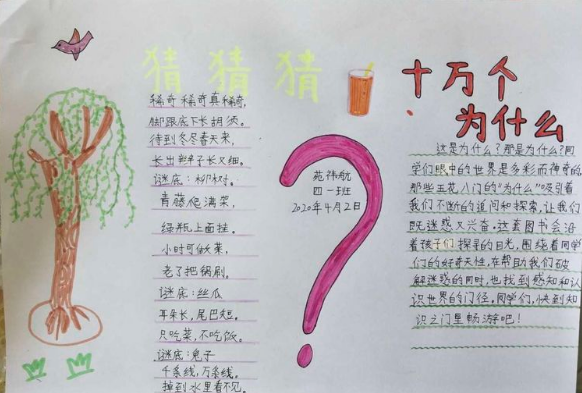 猜猜猜
稀奇稀奇真稀奇,
脚跟底下长胡须。
待到冬尽春天来,
长出辫子长又细。
谜底:柳树。
青藤爬满菜,
绿瓶上面挂。
小时可做菜,
老了把锅刷。
谜底:丝瓜
耳朵长,尾巴短。
只吃菜,不吃饭。
谜底:兔子
千条线,万条线。
掉到水里看不见。
四一班
2020年4月2日
十万个
为什么
这是为什么?那是为什么?同
学们眼中的世界是多彩而神奇的
那些五花八门的“为什么”吸引着
我们不断的追问和探索,让我们
既迷惑又兴奋。这套图书会沿
着孩子们探星的目光,围绕着同学
们的好奇天性,在帮助我们破
解迷惑的同时,也找到感知和认
识世界的门径。同学们,快到知
识之门里畅游吧!